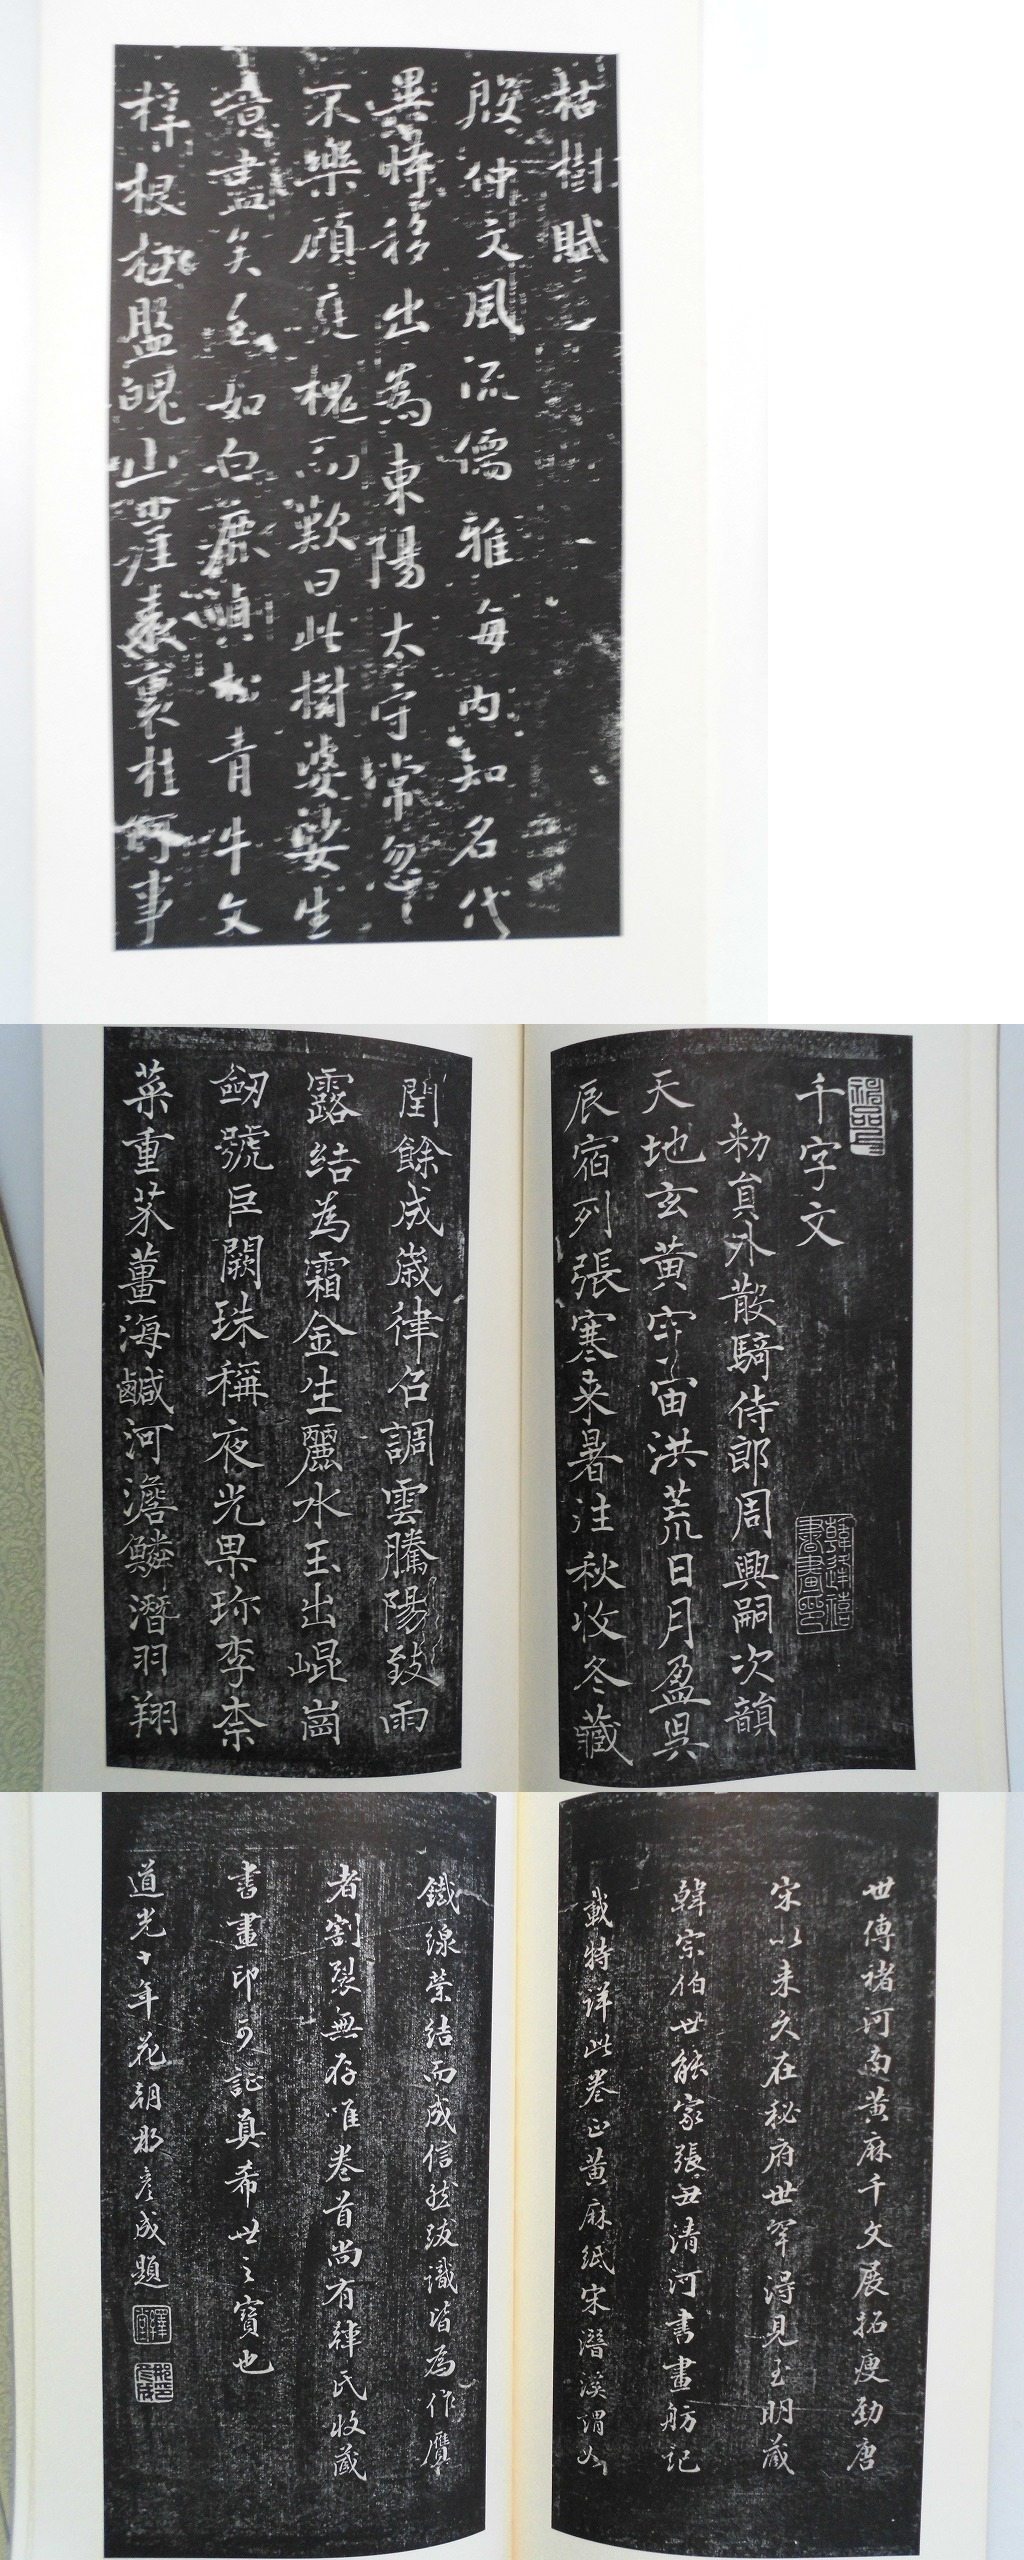 枯樹賦
殷仲文風流儒雅每內知名代
異時移出為東陽太守常忽忽
不樂顧庭槐而歎曰此樹婆娑生
意盡矣至如白鹿貞松青牛文
梓根柢盤魄山崖表裏桂何事
千字文
勅員外散騎侍郎周興嗣次韻
天地玄黃宇宙洪荒日月盈昃
辰宿列張寒来暑往秋收冬藏
閏餘成歲律召調雲騰陽致雨
露結為霜金生麗水玉出崐崗
劒號巨闕珠稱夜光果珎李柰
菜重芥薑海鹹河澹鱗潛羽翔
韓逢禧書畫印
世傳褚河南黃麻千文展拓瘦勁唐
宋以来久在秘府世罕得見至明藏
韓宗伯世能家張丑清河書畫舫記
載特詳此卷正黃麻紙宋潛溪謂如
鐵線縈結而成信然跋識皆為作贋
者割裂無存唯卷首尚有韓氏收藏
書畫印可証真希世之寶也
道光十年花朝那彥成題